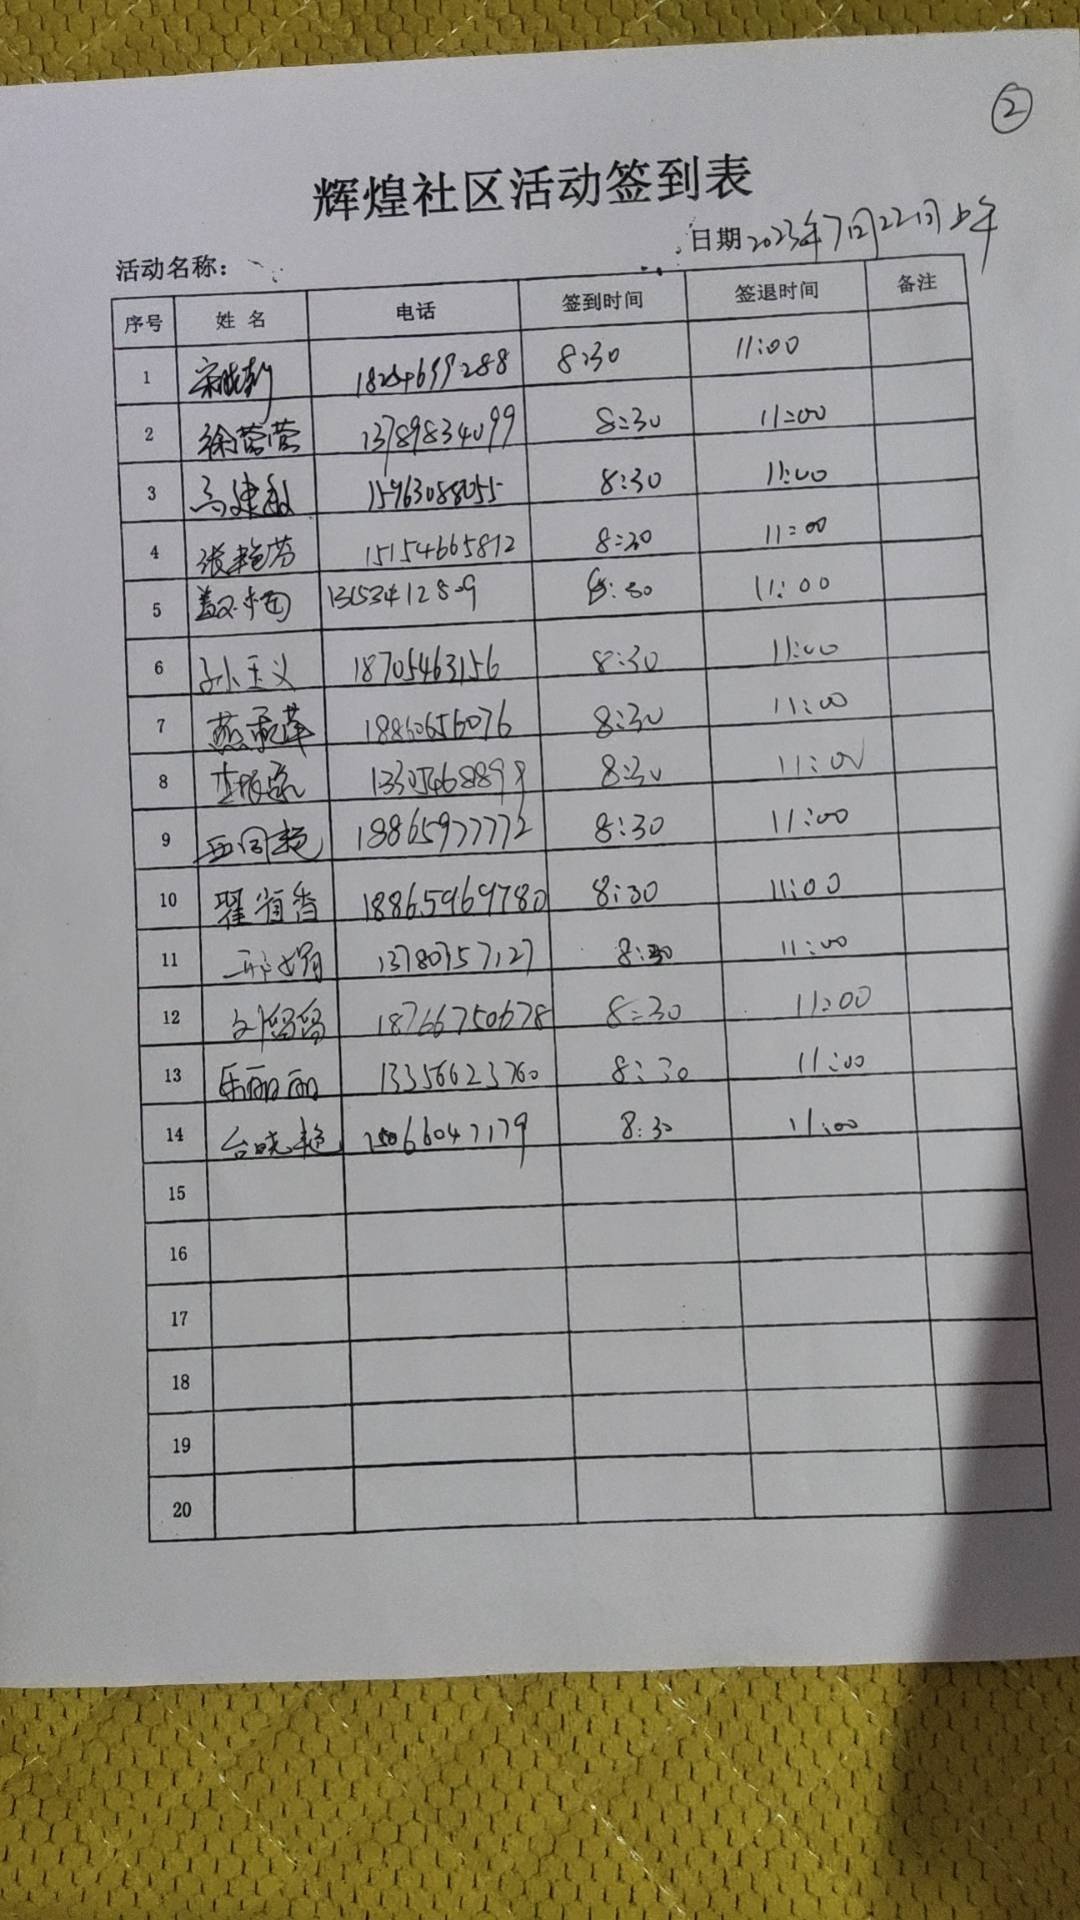 ②
辉煌社区活动签到表
日期 2023年7月22日上午
活动名称：
序号 姓 名 电话 签到时间 签退时间 备注
1 8:30 11:00
2 徐营营 13789834099 8:30 11:00
3 马建敏 15963088055 8:30 11:00
4 张艳芬 15154665812 8:30 11:00
5 8:30 11:00
6 孙玉义 18705463156 8:30 11:00
7 18860656076 8:30 11:00
8 13305468898 8:30 11:00
9 18865977772 8:30 11:00
10 翟省香 18865969780 8:30 11:00
11 邢娟 13780757127 8:30 11:00
12 刘留留 18766750678 8:30 11:00
13 乐丽丽 13356623760 8:30 11:00
14 台晓艳 8:30 11:00
15
16
17
18
19
20